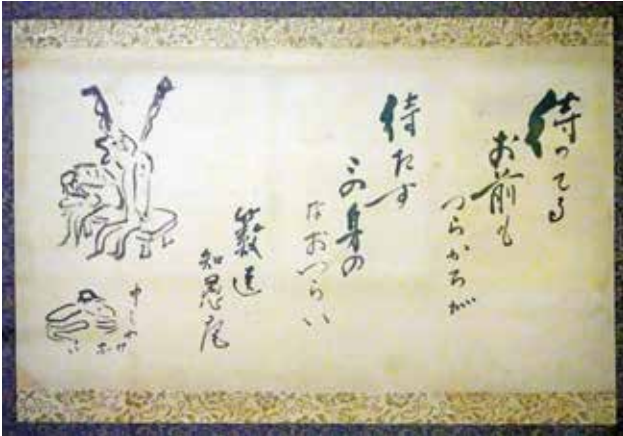 待ってる
お前も
つらかろが
待たす
この身の
なおつらい
申しわけ